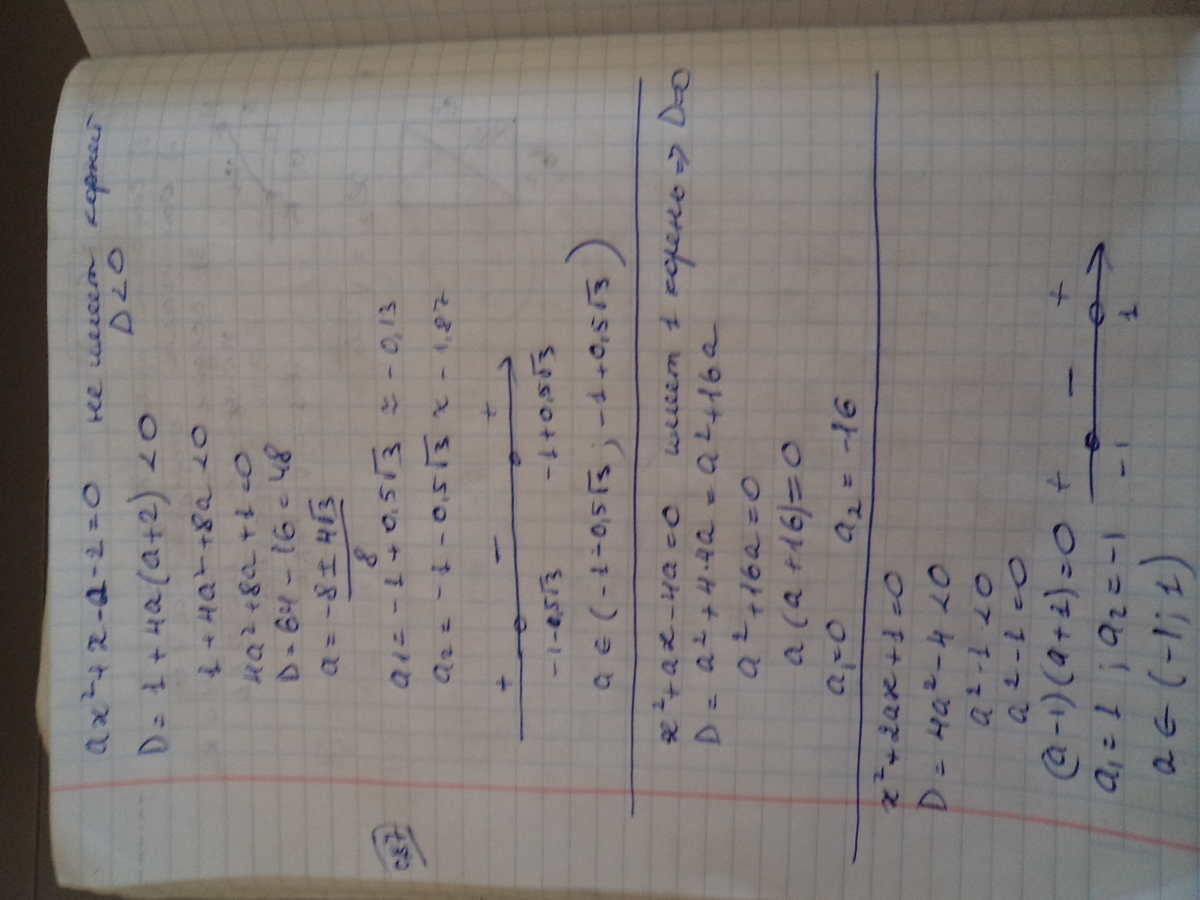 ax²+x-a-2=0 не имеет корней
D<0
D=1+4a(a+2)<0
1+4a²+8a<0
4a²+8a+1=0
D=64-16=48
a=-8±4√3
8
a1=-1+0,5√3≈-0,13
a2=-1-0,5√3≈-1,87
+ - +
-1-0,5√3 -1+0,5√3
a∈(-1-0,5√3; -1+0,5√3)
x²+ax-4a=0 имеет 1 корень⇒D=0
D=a²+4·4a=a²+16a
a²+16a=0
a(a+16)=0
a₁=0 a₂=-16
x²+2ax+1=0
D=4a²-4<0
a²-1<0
a²-1=0
(a-1)(a+1)=0 + - +
a₁=1; a₂=-1 -1 1
a∈(-1;1)